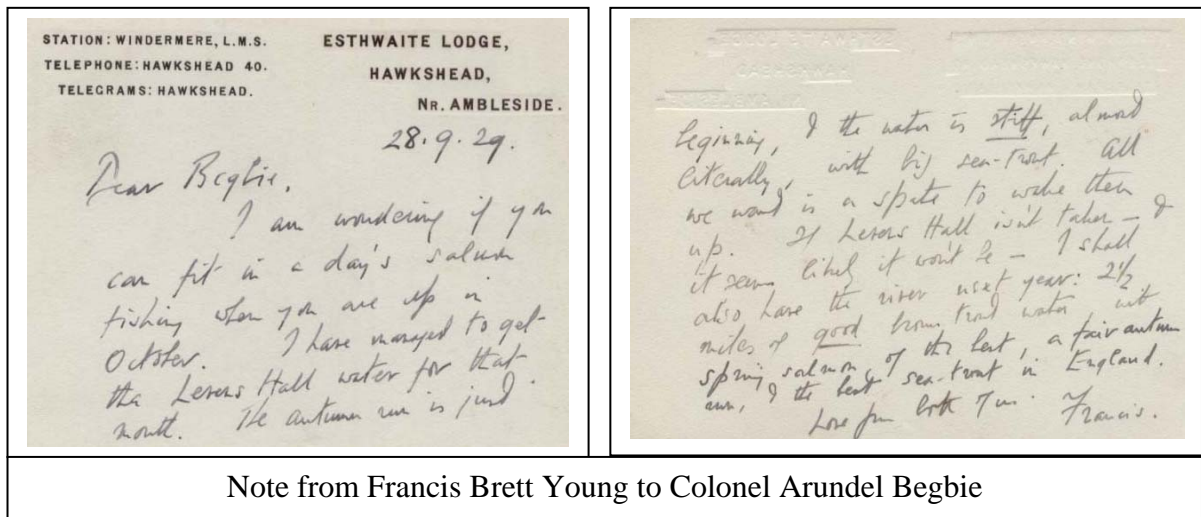 STATION: WINDERMERE, L.M.S.
TELEPHONE: HAWKSHEAD 40.
TELEGRAMS: HAWKSHEAD.
ESTHWAITE LODGE,
HAWKSHEAD,
NR. AMBLESIDE.
28.9.29.
Dear Begbie,
I am wondering if you
can fit in a day's salmon
fishing when you are up in
October. I have managed to get
the Levens Hall water for that
month. The autumn run is just
beginning, & the water is stiff, almost
literally, with big sea-trout. All
we want is a spate to wake them
up. If Levens Hall isn't taken – &
it seems likely it won't be – I shall
also have the river next year: 2½
miles of good brown trout water with
spring salmon of the best, a fair autumn
run, & the best sea-trout in England.
Love from both of us. Francis.
Note from Francis Brett Young to Colonel Arundel Begbie